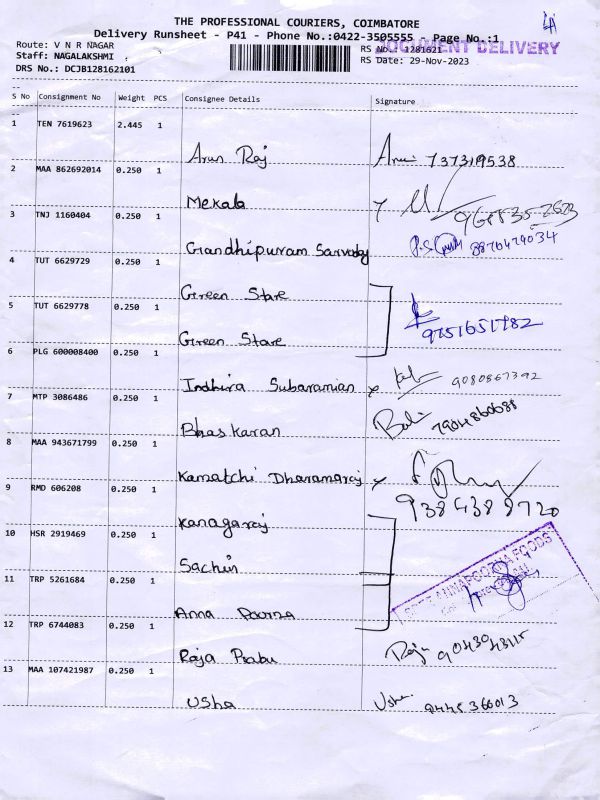 THE PROFESSIONAL COURIERS, COIMBATORE
Delivery Runsheet - P41 - Phone No.:0422-3505555 - Page No.:1
DOCUMENT DELIVERY
Route: V N R NAGAR
RS No.: 1281621
Staff: NAGALAKSHMI
RS Date: 29-Nov-2023
DRS No.: DCJB128162101
S No Consignment No Weight PCS Consignee Details Signature
1 TEN 7619623 2.445 1
Arun Raj Arun 737319538
2 MAA 862692014 0.250 1
Mekala
3 TNJ 1160404 0.250 1
Gandhipuram Sarvoday 8870479034
4 TUT 6629729 0.250 1
Green Stare
5 TUT 6629778 0.250 1
9751651782
Green Stare
6 PLG 600008400 0.250 1
Indhira Subaramian 9080867392
7 MTP 3086486 0.250 1
Bhaskaran 7904860688
8 MAA 943671799 0.250 1
Kamatchi Dharamaraj
9 RMD 606208 0.250 1
9384388720
Kanagaraj
10 HSR 2919469 0.250 1
Sachin
SREE ANNAPOORNA FOODS
11 TRP 5261684 0.250 1
Anna Poorna
12 TRP 6744083 0.250 1
Raja Prabu Raju
13 MAA 107421987 0.250 1
Usha Usha 9445360013